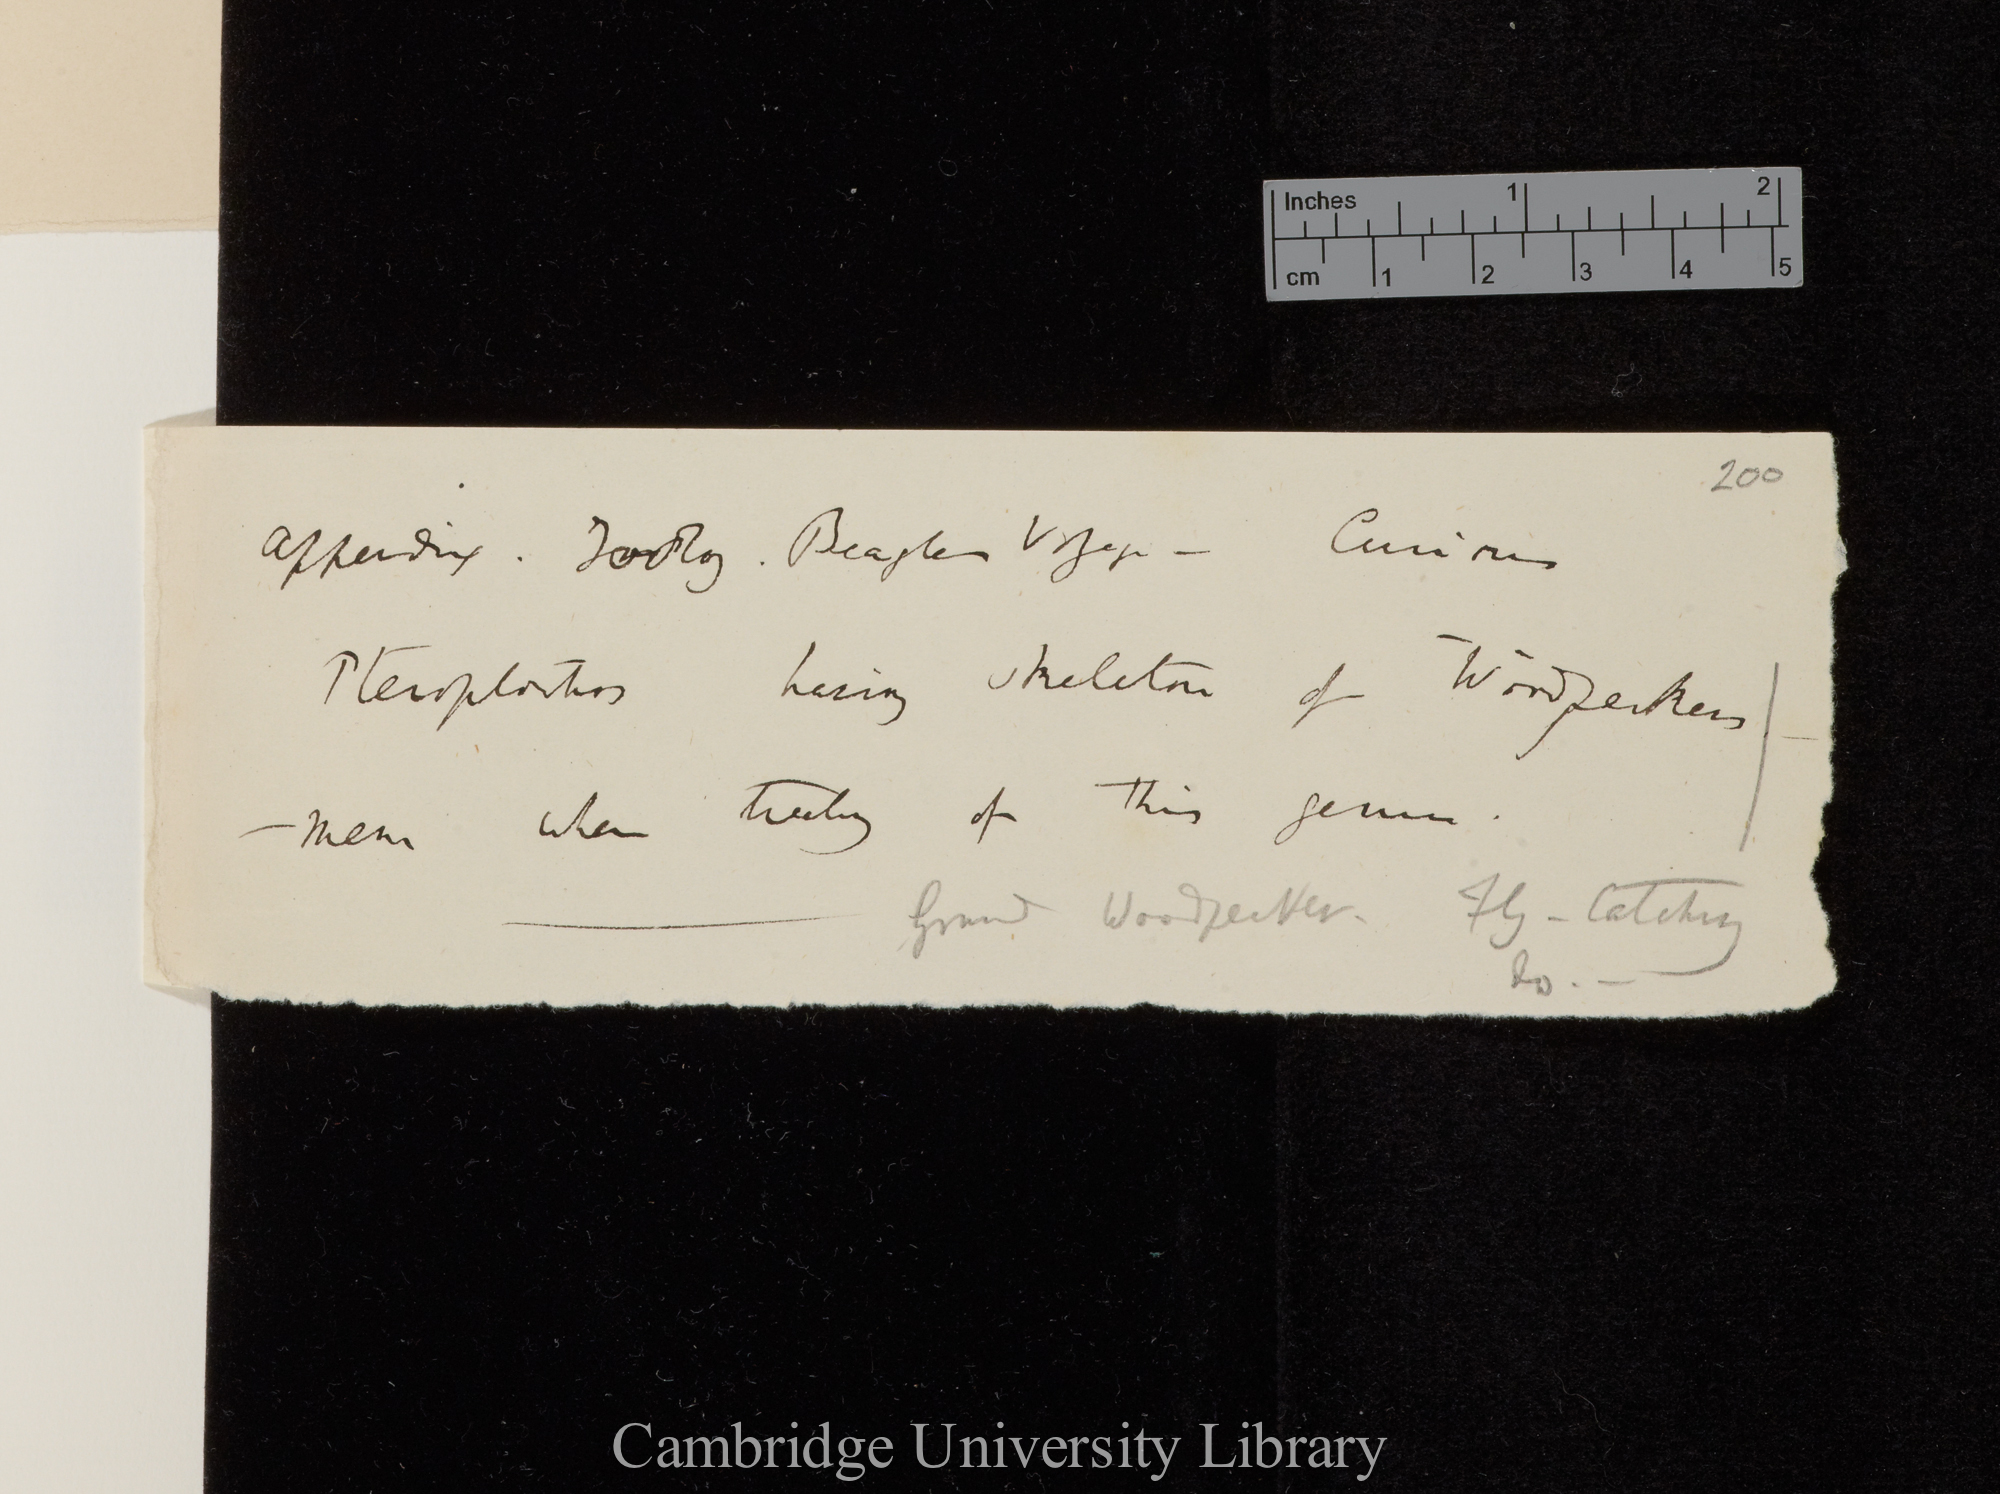 Inches 1 2
cm 1 2 3 4 5
200
Appendix. Zoolog. Beagles Voyage — Curious
Pteroptochos having skeleton of Woodpeckers —
— Mem when treating of this genus.
Ground Woodpecker. Fly-Catching
Do. —
Cambridge University Library